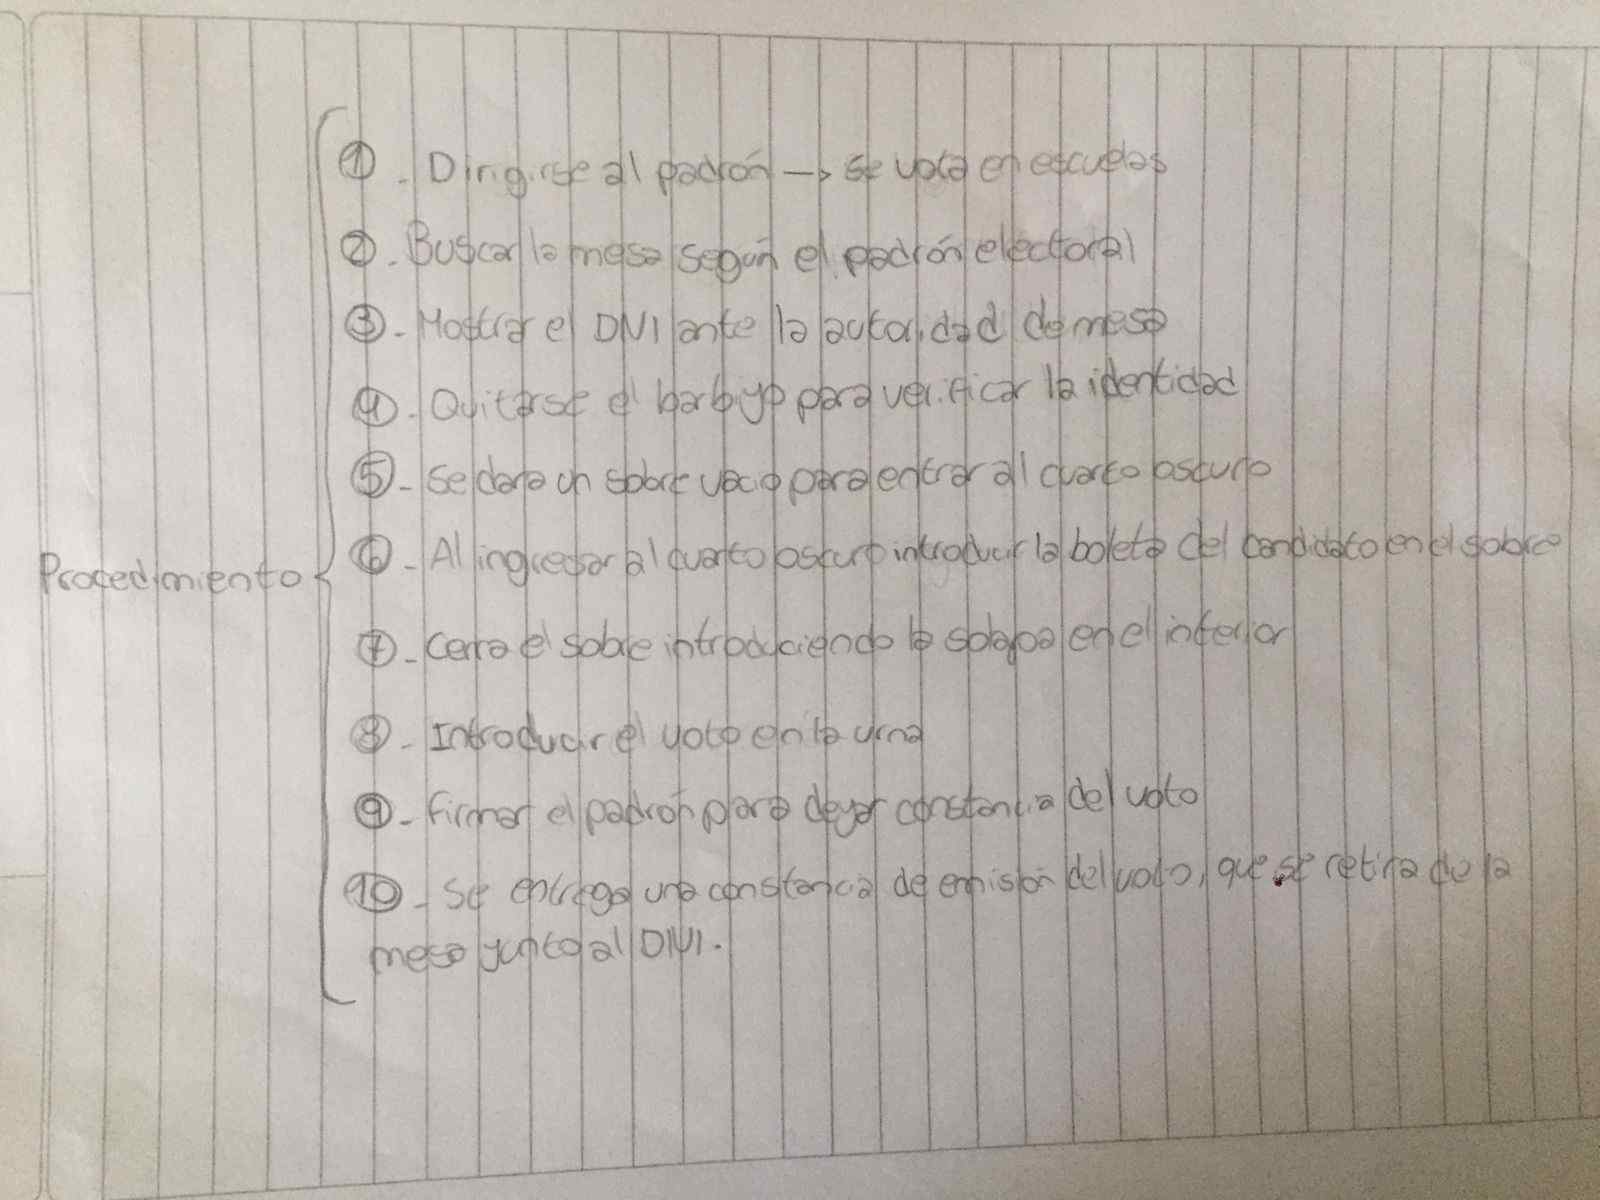 Procedimiento
①- Dirigirse al padrón → se vota en escuelas
②- Buscar la mesa según el padrón electoral
③- Mostrar el DNI ante la autoridad de mesa
④- Quitarse el barbyo para verificar la identidad
⑤- Se dara un sobre vacio para entrar al cuarto oscuro
⑥- Al ingresar al cuarto oscuro introducir la boleta del candidato en el sobre
⑦- Cerra el sobre introduciendo la solapa en el interior
⑧- Introducir el voto en la urna
⑨- Firmar el padrón para dejar constancia del voto
⑩- Se entrega una constancia de emisión del voto, que se retira de la
mesa junto al DNI.